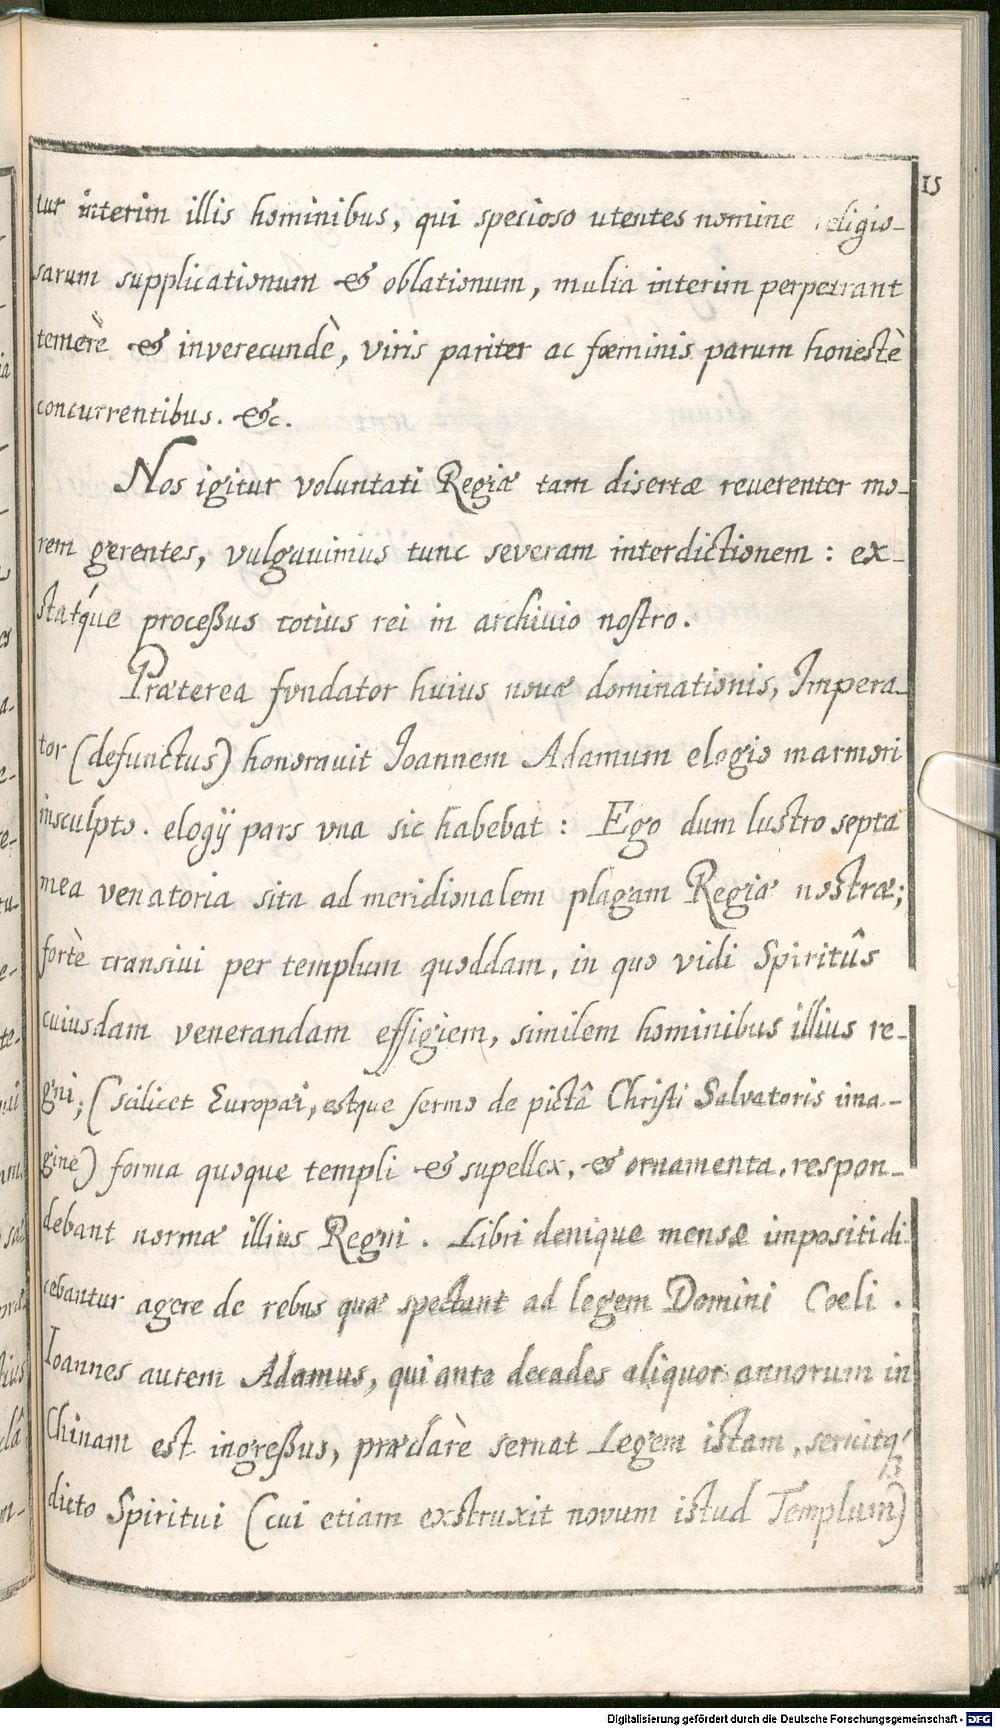 15
tur interim illis hominibus, qui specioso utentes nomine religio-
sarum supplicationum & oblationum, multa interim perpetrant
temerè & inverecundè, viris pariter ac fœminis parum honestè
concurrentibus. &c.
Nos igitur voluntati Regiæ tam disertæ reuerenter mo-
rem gerentes, vulgauimus tunc severam interdictionem : ex-
statq́ue proceßus totius rei in archiuio nostro.
Præterea fundator huius nouæ dominationis, Impera-
tor (defunctus) honorauit Ioannem Adamum elogio marmori
insculpto. elogij pars vna sic habebat : Ego dum lustro septa
mea venatoria sita ad meridionalem plagam Regiæ nostræ;
fortè transiui per templum quoddam, in quo vidi Spiritûs
cuiusdam venerandam effigiem, similem hominibus illius re-
gni; (scilicet Europæi, estque sermo de pictâ Christi Salvatoris ima-
gine) forma quoque templi & supellex, & ornamenta, respon-
debant normæ illius Regni. Libri denique mensæ impositi di
cebantur agere de rebus quæ spectant ad legem Domini Coeli.
Ioannes autem Adamus, qui ante decades aliquot annorum in
Chinam est ingreßus, præclarè seruat Legem istam, seruitq́ꝫ
dicto Spiritui (cui etiam exstruxit novum istud Templum)
Digitalisierung gefördert durch die Deutsche Forschungsgemeinschaft - DFG